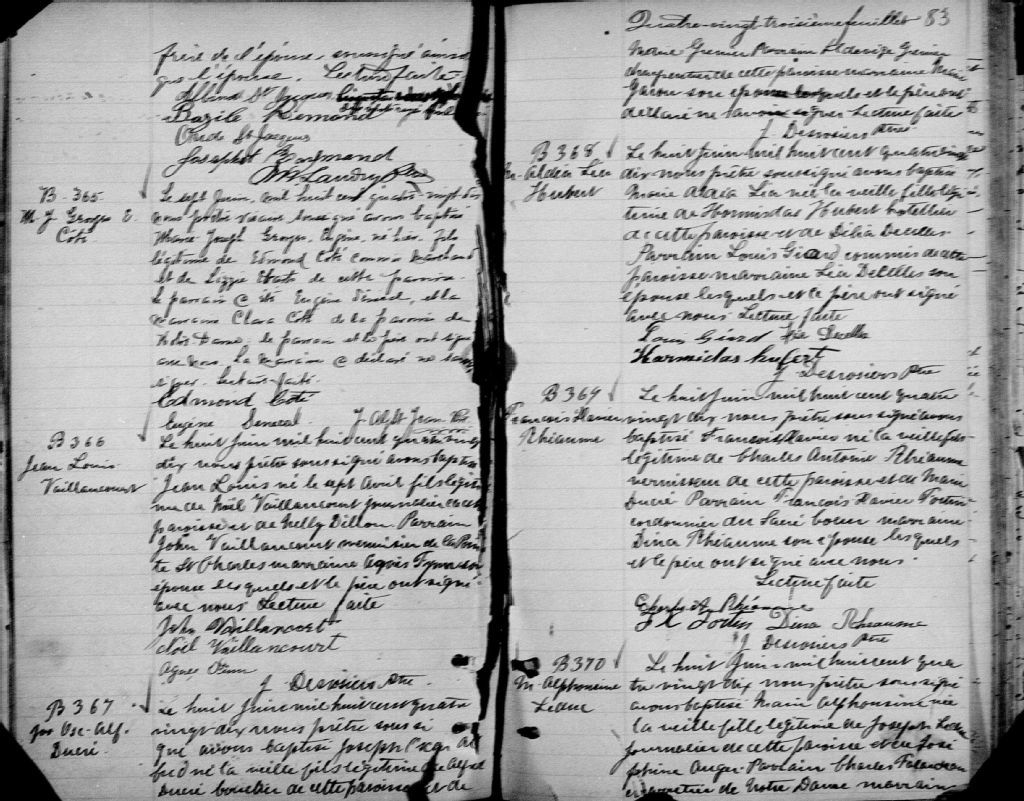 frère de l'épouse, soussigné ainsi
que l'épouse. Lecture faite
Albina St Jacques
Bazile Remond
Ovide St Jacques
Josaphat Raymond
Landry Ptre
B-365
M. J. Georges E.
Coté
Le sept Juin, mil huit cent quatre vingt dix
nous prêtre vicaire soussigné avons baptisé
Marie Joseph Georges Eugène, né hier, fils
légitime de Edmond Coté commis marchand
et de Lizzie de cette paroisse.
le parrain a été Eugène Sénécal, et la
marraine Clara Coté de la paroisse de
Notre Dame, le parrain et le père ont signé
avec nous. La marraine a déclaré ne savoir
signer. Lecture faite.
Edmond Coté
Eugène Senecal J. Alph. Jean Ptr
B 366
Jean Louis
Vaillancourt
Le huit Juin mil huit cent quatre vingt
dix nous prêtre soussigné avons baptisé
Jean Louis né le sept Avril fils légiti
me de Noël Vaillancourt journalier de cette
paroisse et de Nelly Dillon. Parrain
John Vaillancourt menuisier de la Poin
te St Charles marraine Agnès son
épouse lesquels et le père ont signé
avec nous Lecture faite
John Vaillancourt
Noël Vaillancourt
Agnes
J Desrosiers Ptre
B 367
Jos Osc. Alf.
Ducré
Le huit Juin mil huit cent quatre
vingt dix nous prêtre soussi
gné avons baptisé Joseph Oscar Al
fred né la veille fils légitime de Alfred
Ducré boucher de cette paroisse et de
Quatre-vingt-troisième feuillet 83
Marie Grenier Parrain Ildevize Grenier
charpentier de cette paroisse marraine Marie
Garon son épouse lesquels et le père ont
déclaré ne savoir signer Lecture faite
J. Desrosiers Ptre
B 368
M. Aldea Lea
Hubert
Le huit Juin mil huit cent quatre vingt
dix nous prêtre soussigné avons baptisé
Marie Aldea Léa née la veille fille légi
time de Hormisdas Hubert hotellier
de cette paroisse et de Délia Decelles
Parrain Louis Girard commis de cette
paroisse marraine Léa Decelles son
épouse lesquels et le père ont signé
avec nous Lecture faite
Louis Girard Léa Decelles
Hormidas hubert
J Desrosiers Ptre
B 369
François Xavier
Rhéaume
Le huit Juin mil huit cent quatre
vingt dix nous prêtre soussigné avons
baptisé François Xavier né la veille fils
légitime de Charles Antoine Rhéaume
vernisseur de cette paroisse et de Marie
Ducré Parrain François Xavier Fortin
cordonnier du Sacré Coeur marraine
Dina Rhéaume son épouse lesquels
et le père ont signé avec nous
Lecture faite
Charles A. Rhéaume
F X Fortin Dina Rhéaume
J Desrosiers Ptre
B 370
M. Alphonsine
Leduc
Le huit Juin mil huit cent qua
tre vingt dix nous prêtre soussigné
avons baptisé Marie Alphonsine née
la veille fille légitime de Joseph Leduc
journalier de cette paroisse et de José
phine Auger Parrain Charles
de Notre Dame marraine